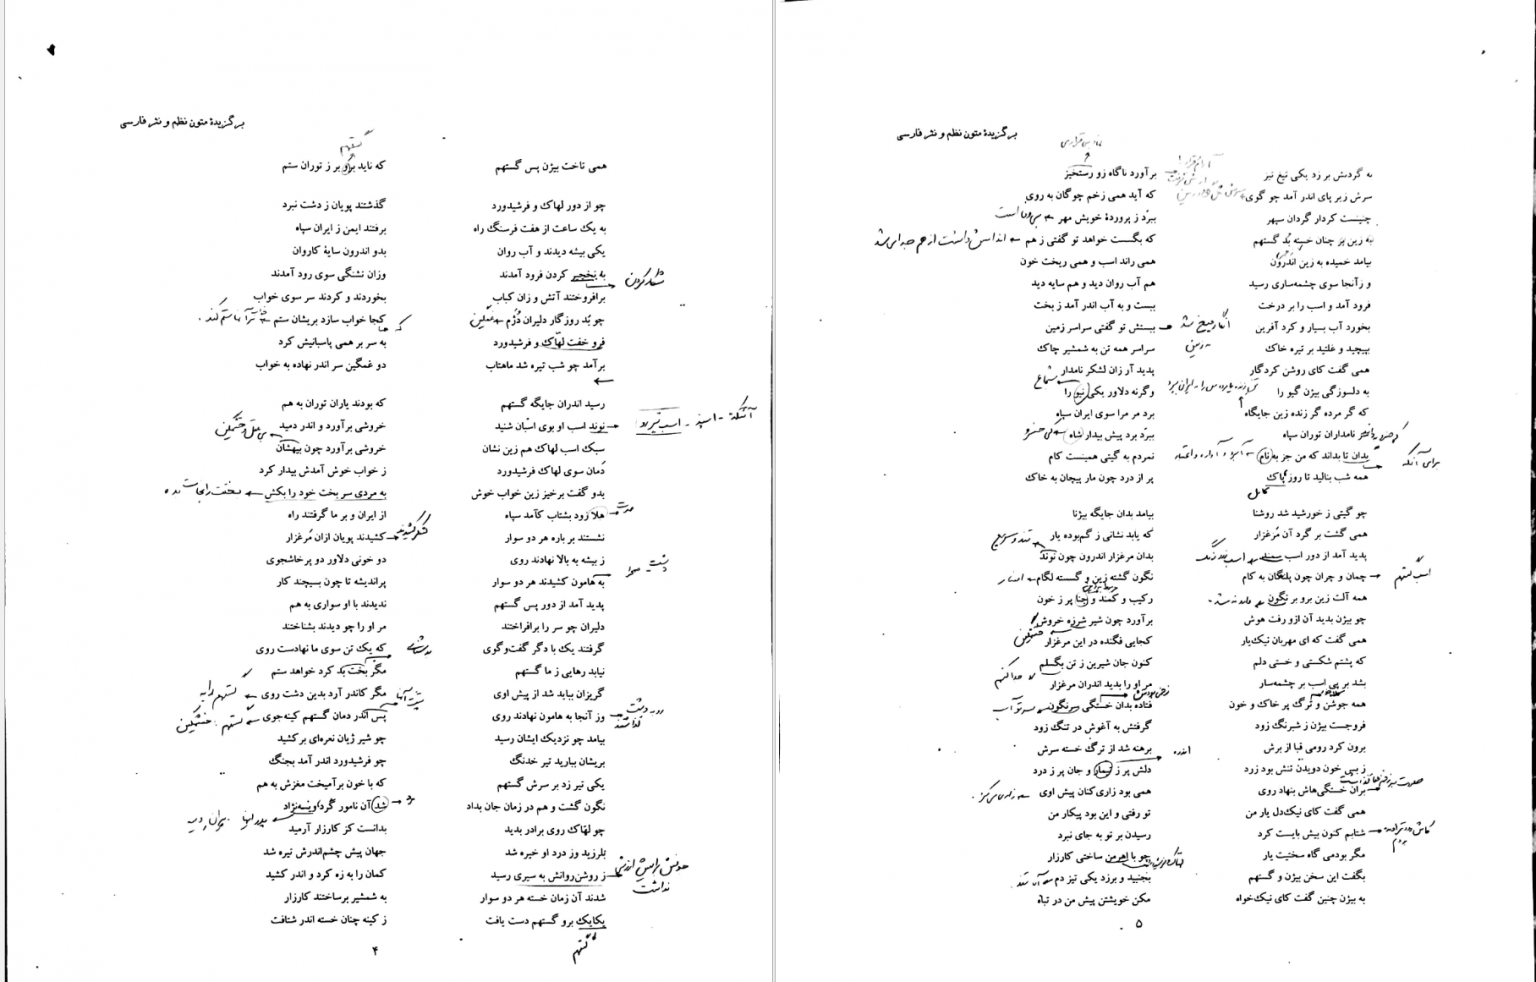 برگزیدهٔ متون نظم و نثر فارسی
گستهم
همی تاخت بیژن پس گستهم که ناید برو بر ز توران ستم
چو از دور لهاک و فرشیدورد گذشتند پویان ز دشت نبرد
به یک ساعت از هفت فرسنگ راه برفتند ایمن ز ایران سپاه
یکی بیشه دیدند و آب روان بدو اندرون سایهٔ کاروان
به نخچیر کردن فرود آمدند وزان تشنگی سوی رود آمدند
شکار کردن
برافروختند آتش و زان کباب بخوردند و کردند سر سوی خواب
چو بُد روزگار دلیران دُژم کجا خواب سازد بریشان ستم
غمگین
فرو خفت لهاک و فرشیدورد به سر بر همی پاسبانیش کرد
برآمد چو شب تیره شد ماهتاب دو غمگین سر اندر نهاده به خواب
رسید اندران جایگه گستهم که بودند یاران توران به هم
نوند اسب او بوی اسبان شنید خروشی برآورد و اندر دمید
سبک اسب لهاک هم زین نشان خروشی برآورد چون بیهشان
دَمان سوی لهاک فرشیدورد ز خواب خوش آمدش بیدار کرد
بدو گفت برخیز زین خواب خوش به مردی سر بخت خود را بکش
هلا زود بشتاب کآمد سپاه از ایران و بر ما گرفتند راه
نشستند بر باره هر دو سوار کشیدند پویان ازان مُرغزار
ز بیشه به بالا نهادند روی دو خونی دلاور دو پرخاشجوی
به هامون کشیدند هر دو سوار پراندیشه تا چون بسیچند کار
پدید آمد از دور پس گستهم ندیدند با او سواری به هم
دلیران چو سر را برافراختند مر او را چو دیدند بشناختند
گرفتند یک با دگر گفت‌وگوی که یک تن سوی ما نهادست روی
نیابد رهایی ز ما گستهم مگر بخت بد کرد خواهد ستم
گریزان بباید شد از پیش اوی مگر کاندر آرد بدین دشت روی
وز آنجا به هامون نهادند روی پس اندر دمان گستهم کینه‌جوی
بیامد چو نزدیک ایشان رسید چو شیر ژیان نعره‌ای برکشید
بریشان ببارید تیر خدنگ چو فرشیدورد اندر آمد بجنگ
یکی تیر زد بر سرش گستهم که با خون برآمیخت مغزش به هم
نگون گشت و هم در زمان جان بداد شد آن نامور گُرد ویسه‌نژاد
چو لهّاک روی برادر بدید بدانست کز کارزار آرمید
بلرزید وز درد او خیره شد جهان پیش چشم‌اندرش تیره شد
ز روشن‌روانش به سیری رسید کمان را به زه کرد و اندر کشید
شدند آن زمان خسته هر دو سوار به شمشیر برساختند کارزار
یکایک برو گستهم دست یافت ز کینه چنان خسته اندر شتافت
گستهم
۴
برگزیدهٔ متون نظم و نثر فارسی
به گردنش بر زد یکی تیغ تیز برآورد ناگاه زو رستخیز
سرش زیر پای اندر آمد چو گوی که آید همی زخم چوگان به روی
چنینست کردار گردان سپهر ببرّد ز پروردهٔ خویش مهر
به زین بر چنان خسته بُد گستهم که بگسست خواهد تو گفتی ز هم
بیامد خمیده به زین اندرون همی راند اسب و همی ریخت خون
و زآنجا سوی چشمه‌ساری رسید هم آب روان دید و هم سایه دید
فرود آمد و اسب را بر درخت ببست و به آب اندر آمد ز بخت
بخورد آب بسیار و کرد آفرین ببستش تو گفتی سراسر زمین
بپیچید و غلتید بر تیره خاک سراسر همه تن به شمشیر چاک
همی گفت کای روشن کردگار پدید آر زان لشکر نامدار
به دلسوزگی بیژن گیو را وگرنه دلاور یکی نیو را
شجاع
که گر مرده گر زنده زین جایگاه برد مر مرا سوی ایران سپاه
نامداران توران سپاه ببرّد برد پیش بیدار شاه
بدان تا بداند که من جز به نام نمردم به گیتی همینست کام
برای آنکه
همه شب بنالید تا روز پاک پر از درد چون مار پیچان به خاک
کامل
چو گیتی ز خورشید شد روشنا بیامد بدان جایگه بیژنا
همی گشت بر گرد آن مُرغزار که یابد نشانی ز گم‌بوده یار
پدید آمد از دور اسب سمند بدان مرغزار اندرون چون نوند
چمان و چران چون پلنگان به کام نگون گشته زین و گسسته لگام
اسب گستهم
همه آلت زین برو بر نگون رکیب و کمند و جنا پر ز خون
چو بیژن بدید آن ازو رفت هوش برآورد چون شیر شرزه خروش
خشمگین
همی گفت که ای مهربان نیک‌یار کجایی فگنده در این مرغزار
که پشتم شکستی و خستی دلم کنون جان شیرین ز تن بگسلم
جدا کنم
بشد بر پی اسب بر چشمه‌سار مر او را بدید اندران مرغزار
همه جوشن و تَرگ پر خاک و خون فتاده بدان خستگی سرنگون
فروجست بیژن ز شبرنگ زود گرفتش به آغوش در تنگ زود
برون کرد رومی قبا از برش برهنه شد از ترگ خسته سرش
ز بس خون دویدن تنش بود زرد دلش پر ز تیمار و جان پر ز درد
بران خستگی‌هاش بنهاد روی همی بود زاری‌کنان پیش اوی
همی گفت کای نیک‌دل یار من تو رفتی و این بود پیکار من
شتابم کنون بیش بایست کرد رسیدن بر تو به جای نبرد
مگر بودمی گاه سختیت یار چو با اهرمن ساختی کارزار
بگفت این سخن بیژن و گستهم بجنبید و برزد یکی تیز دم
به بیژن چنین گفت کای نیک‌خواه مکن خویشتن پیش من در تباه
۵